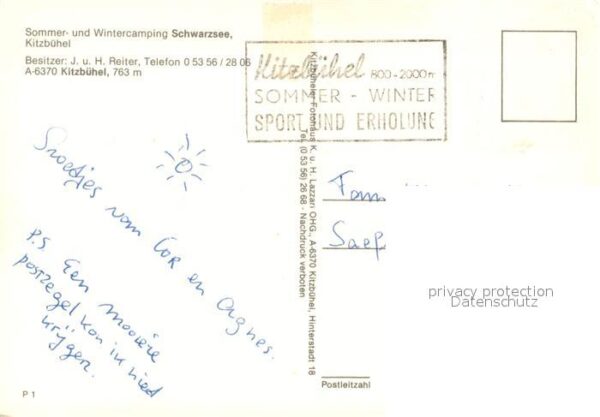 Sommer- und Wintercamping Schwarzsee,
Kitzbühel
Besitzer: J. u. H. Reiter, Telefon 0 53 56 / 28 06
A-6370 Kitzbühel, 763 m
Kitzbühel 800-2000 m
SOMMER - WINTER
SPORT UND ERHOLUNG
Groetjes van Cor en Agnes.
P.S. Een mooiere
postzegel kon ik niet
krijgen.
Kitzbüheler Fotohaus K. u. H. Lazzari OHG., A-6370 Kitzbühel, Hinterstadt 18
Tel. (0 53 56) 26 68 - Nachdruck verboten
Fam
Saep
privacy protection
Datenschutz
Postleitzahl
P 1